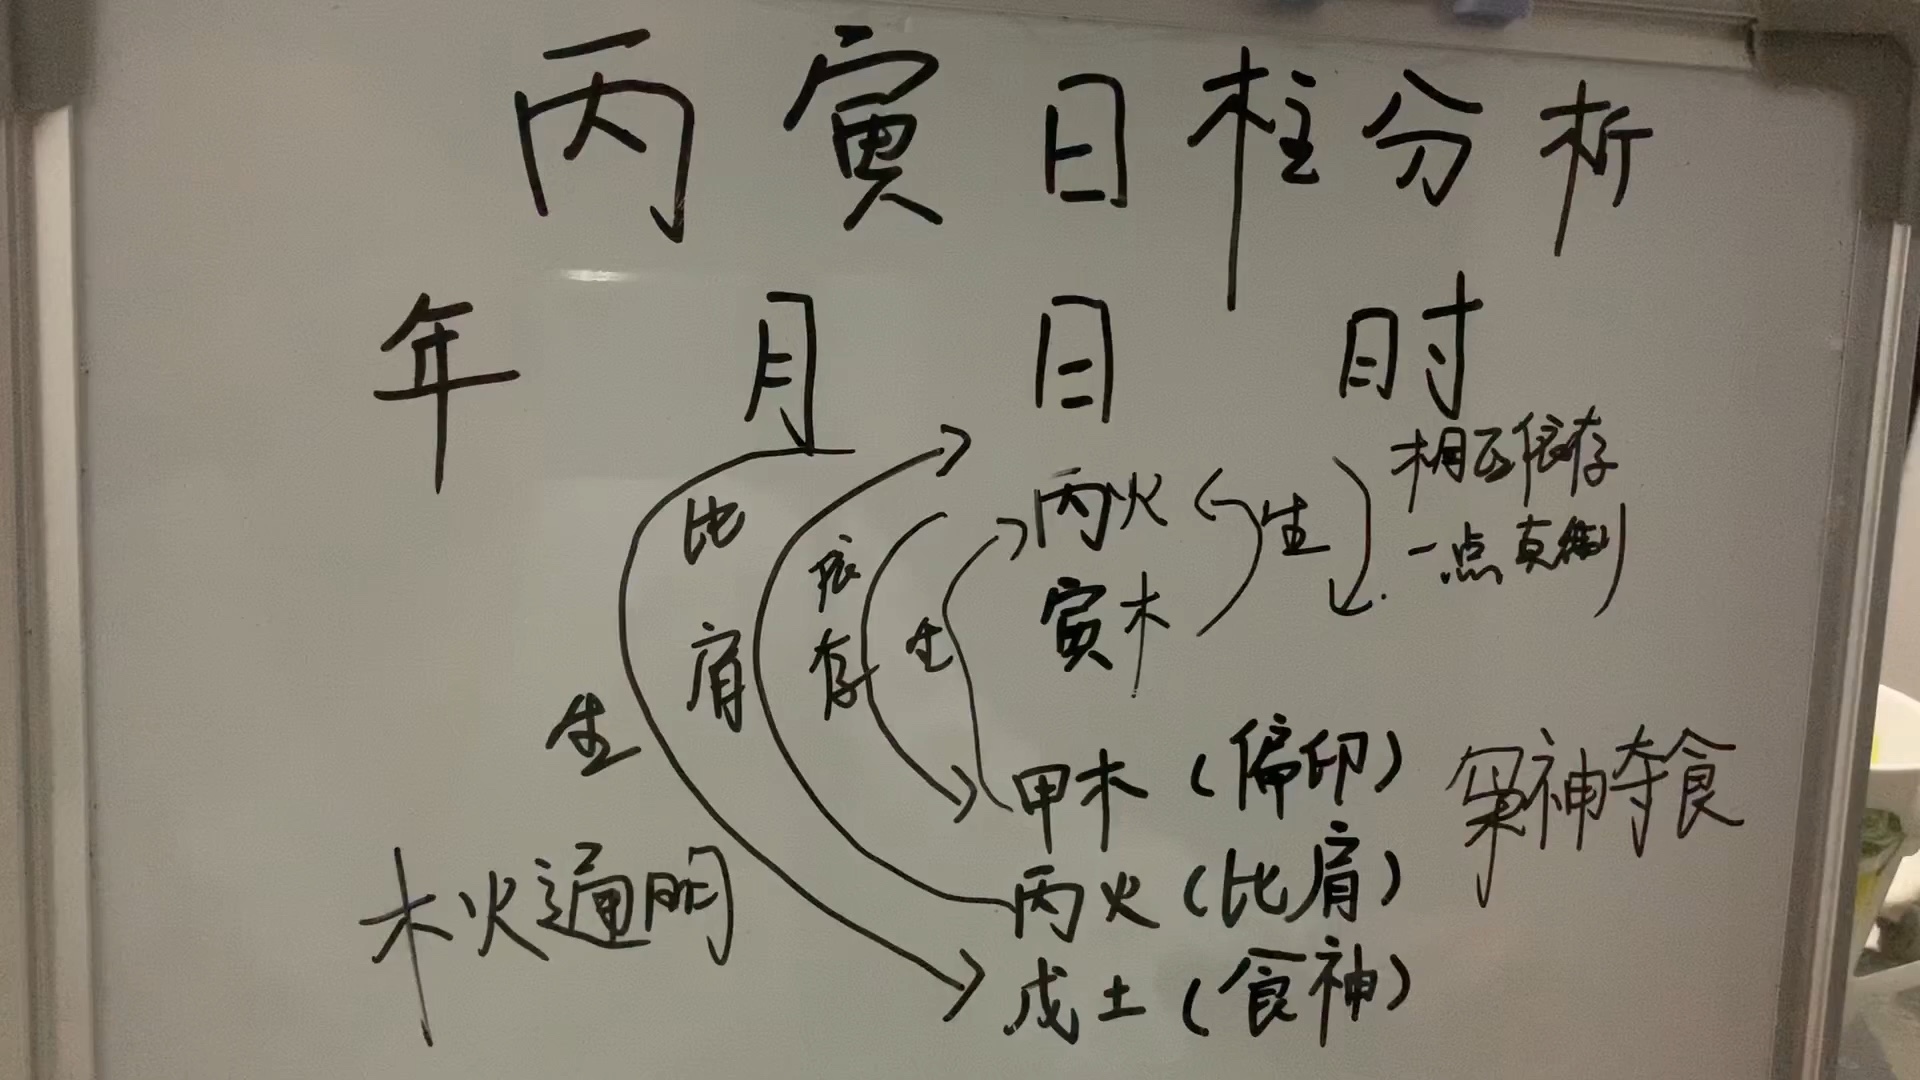 丙寅日柱分析
年 月 日 时
相互依存
一点真
比肩
依存
生
丙火
生
寅木
生
甲木(偏印)
枭神夺食
丙火(比肩)
木火通明
戊土(食神)